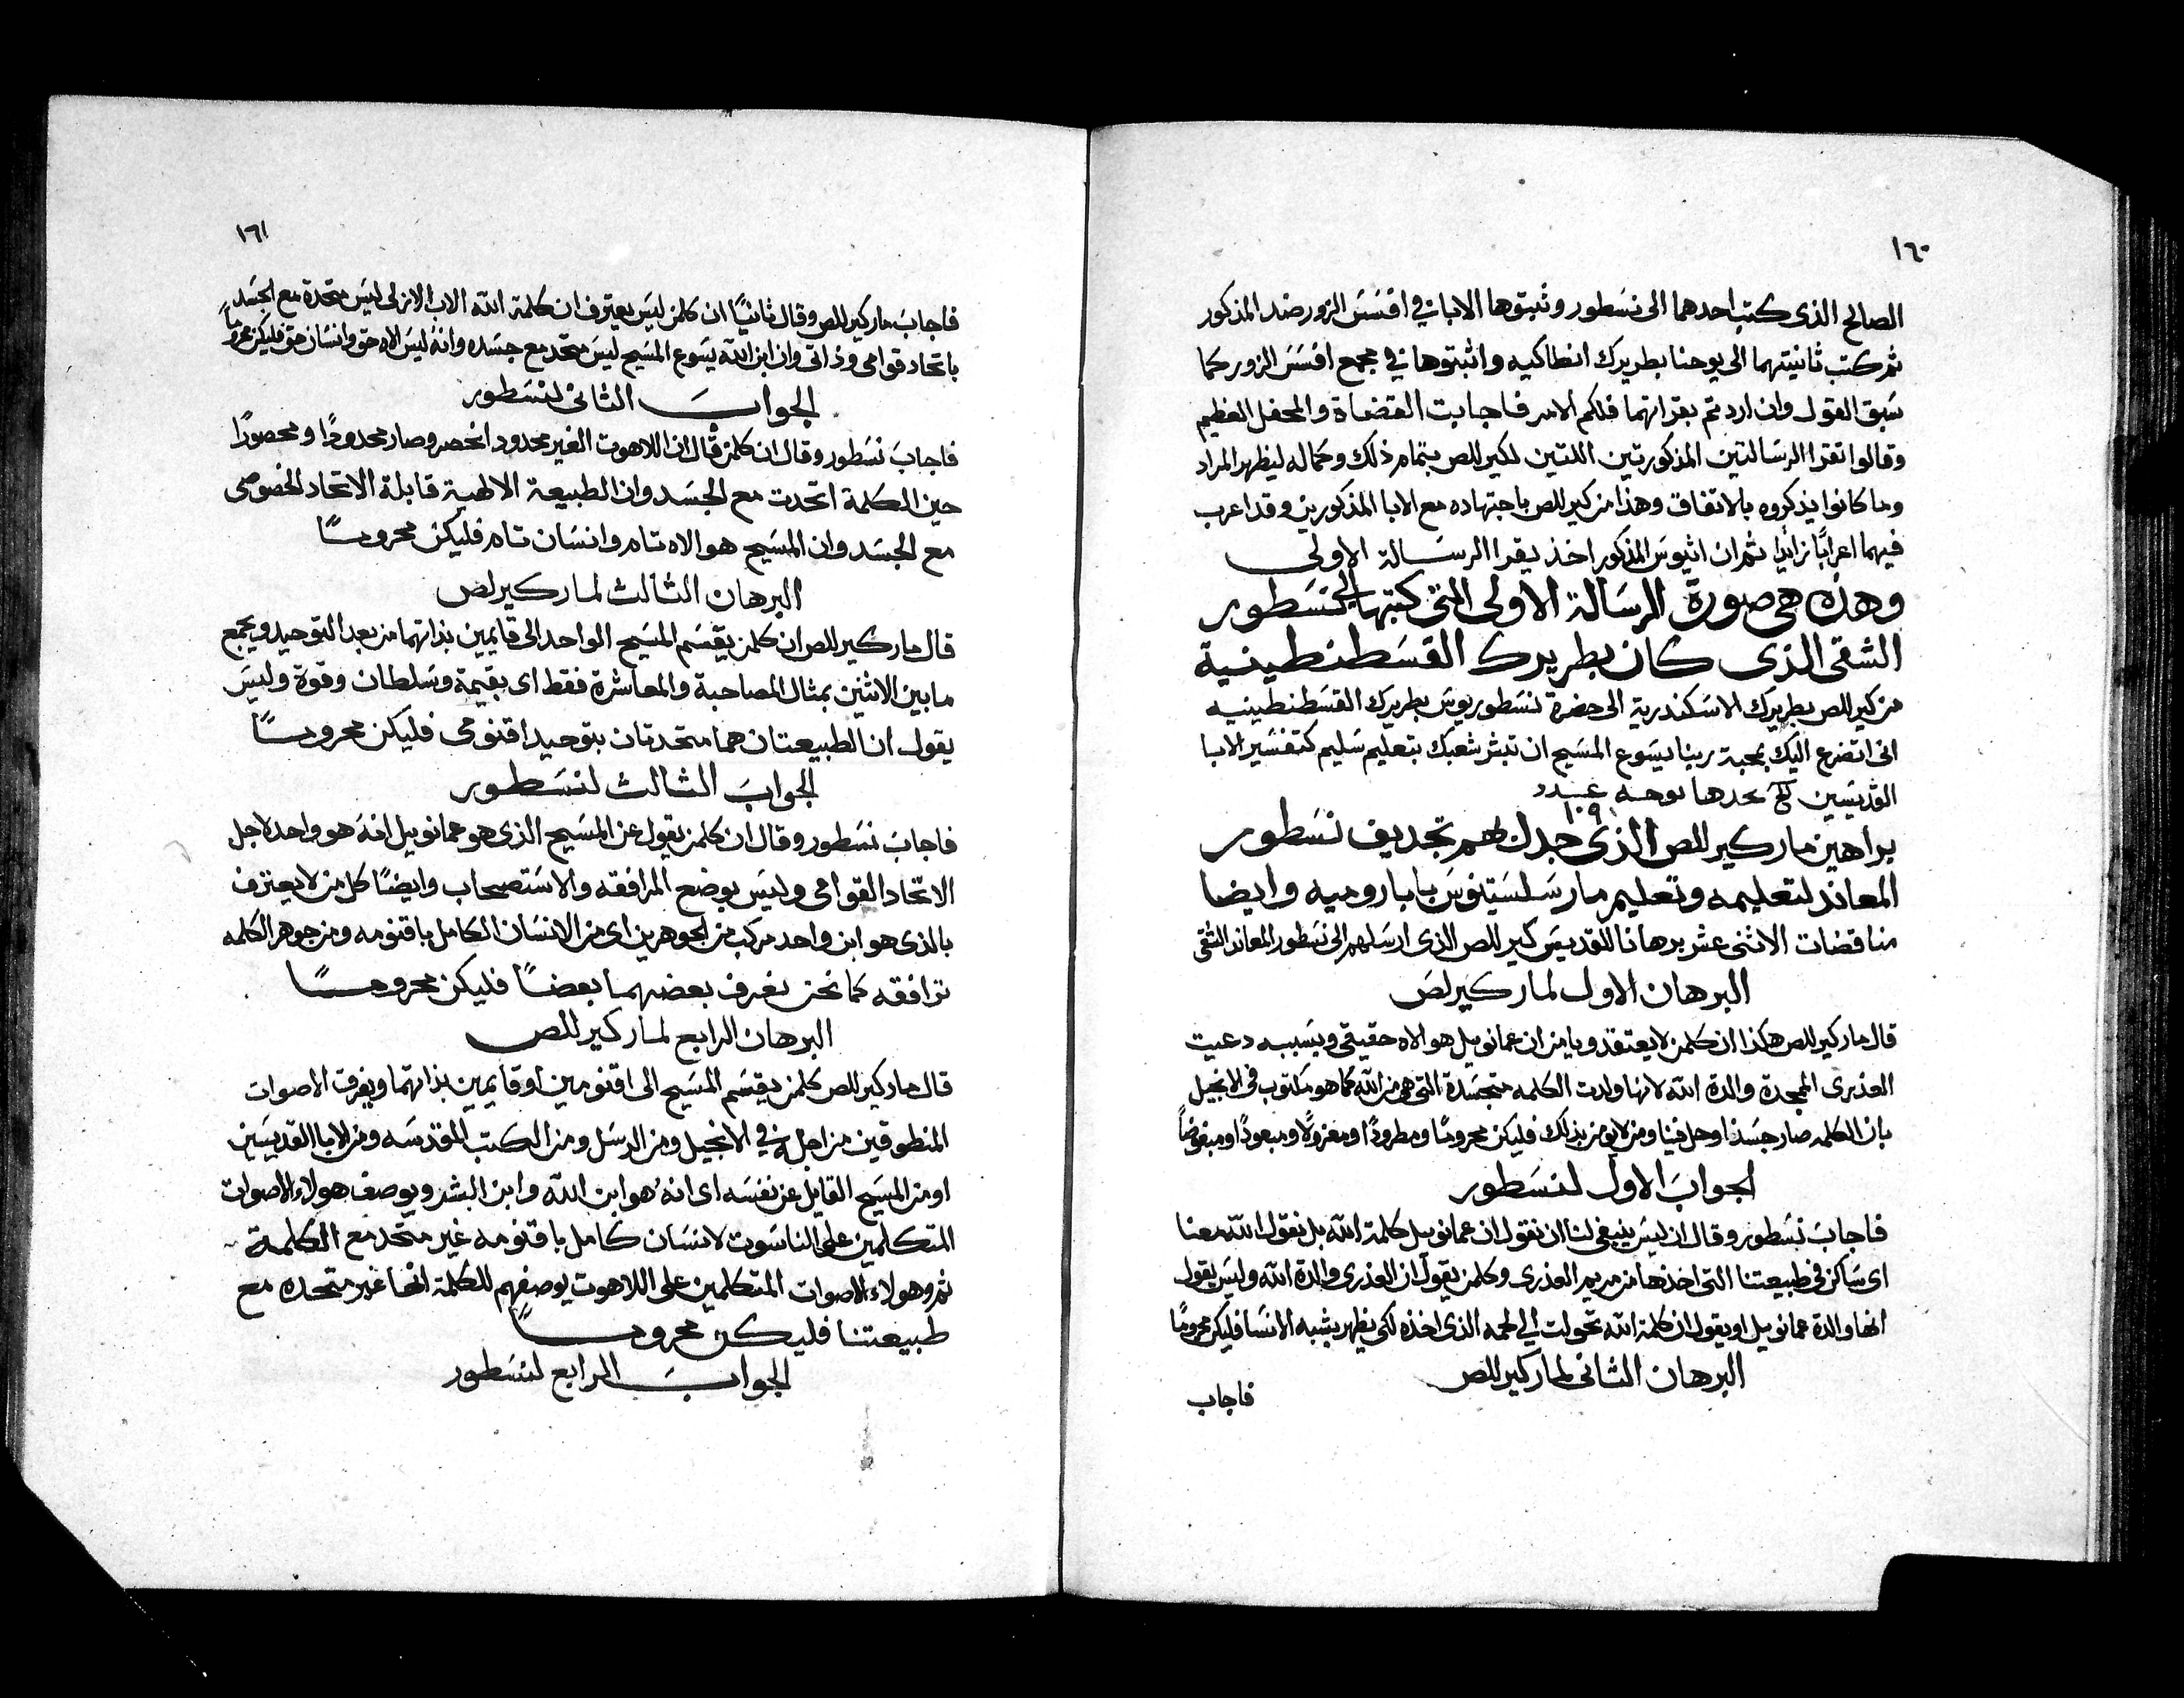 ١٦٠
الصالح الذى كتب احدهما الى نسطور وثبتوها الابا في افسس الزور ضد المذكور
ثم كتب ثانيتهما الى يوحنا بطريرك انطاكيه واثبتوها في مجمع افسس الزور كما
سبق القول وان اردتم بقراتهما فلكم الامر فاجابت القضاة والمحفل العظيم
وقالوا تقرا الرسالتين المذكورتين اللتين لكيرللص بتمام ذلك وكماله ليظهر المراد
وما كانوا يذكروه بالاتفاق وهذا من كيرللص باجتهاده مع الابا المذكورين وقد اعرب
فيهما اعرابًا زايدًا ثم ان اثيوس المذكور اخذ يقرا الرسالة الاولى
وهذه هى صورة الرسالة الاولى التى كتبها الى نسطور
الشقى الذى كان بطريرك القسطنطينية
من كيرللص بطريرك الاسكندرية الى حضرة نسطوريوس بطريرك القسطنطينيه
انى اتضرع اليك بمحبة ربنا يسوع المسيح ان تبشر شعبك بتعليم سليم كتفسير الابا
القديسين تجدها بوجه عدد
١٠٩
براهين مار كيرللص الذى جدل بهم تجديف نسطور
المعاند لتعليمه وتعليم مار سلستينوس بابا روميه وايضا
مناقضات الاثنى عشر برهانا للقديس كيرللص الذى ارسلهم الى نسطور المعاند الشقى
البرهان الاول لمار كيرلص
قال مار كيرللص هكذا ان كلمن لا يعتقد ويامن ان عمانوييل هو الاه حقيقى وبسببه دعيت
العذرى الممجدة والدة الله لانها ولدت الكلمه متجسدة التى هى من الله كما هو مكتوب فى الانجيل
بان الكلمه صار جسدًا وحل فينا ومن لا يومن بذلك فليكن محرومًا ومطرودًا ومعزولًا ومبعودًا ومبغوضًا
الجواب الاول لنسطور
فاجاب نسطور وقال ان ليس ينبغى لنا ان نقول ان عمانوييل كلمة الله بل نقول الله معنا
اى ساكن فى طبيعتنا التى اخذها من مريم العذرى وكلمن يقول ان العذرى والدة الله وليس يقول
انها والدة عمانوييل او يقول ان كلمة الله تحولت الى لحمه الذى اخذه لكى يظهر بشبه الانسا فليكن محرومًا
البرهان الثانى لمار كيرللص
فاجاب
١٦١
فاجاب مار كيرللص وقال ثانيًا ان كلمن ليس يعترف ان كلمة الله الاب الازلى ليس متحدة مع الجسد
باتحاد قوامى وذاتى وان ابن الله يسوع المسيح ليس متحد مع جسده وانه ليس الاه حق وانسان حق فليكن محرومًا
الجواب الثانى لنسطور
فاجاب نسطور وقال ان كلمن قال ان اللاهوت الغير محدود انحصر وصار محدودًا ومحصورًا
حين الكلمة اتحدت مع الجسد وان الطبيعة الالهية قابلة الاتحاد الخصوصى
مع الجسد وان المسيح هو الاه تام وانسان تام فليكن محرومًا
البرهان الثالث لمار كيرلص
قال مار كيرللص ان كلمن يقسم المسيح الواحد الى قايمين بذاتهما من بعد التوحيد ويجمع
مابين الاثنين بمثال المصاحبة والمعاشرة فقط اى بقيمة وسلطان وقوة وليس
يقول ان الطبيعتان هما متحدتان بتوحيد اقنومى فليكن محرومًا
الجواب الثالث لنسطور
فاجاب نسطور وقال ان كلمن يقول عن المسيح الذى هو عمانوييل انه هو واحد لاجل
الاتحاد القوامى وليس بوضع المرافقه والاستصحاب وايضًا كل من لا يعترف
بالذى هو ابن واحد مركب من الجوهرين اى من الانسان الكامل باقنومه ومن جوهر الكلمه
ترافقه كما نحن نعرف بعضهما بعضًا فليكن محرومًا
البرهان الرابع لمار كيرللص
قال مار كيرللص كلمن يقسم المسيح الى اقنومين او قايمين بذاتهما ويفرق الاصوات
المنطوقين من اجله في الانجيل ومن الرسل ومن الكتب المقدسه ومن الابا القديسين
او من المسيح القايل عن نفسه اى انه هو ابن الله وابن البشر ويوصف هولاء الاصوات
المتكلمين على الناسوت لانسان كامل باقنومه غير متحد مع الكلمة
ثم وهولاء الاصوات المتكلمين على اللاهوت يوصفهم للكلمة انها غير متحده مع
طبيعتنا فليكن محرومًا
الجواب الرابع لنسطور